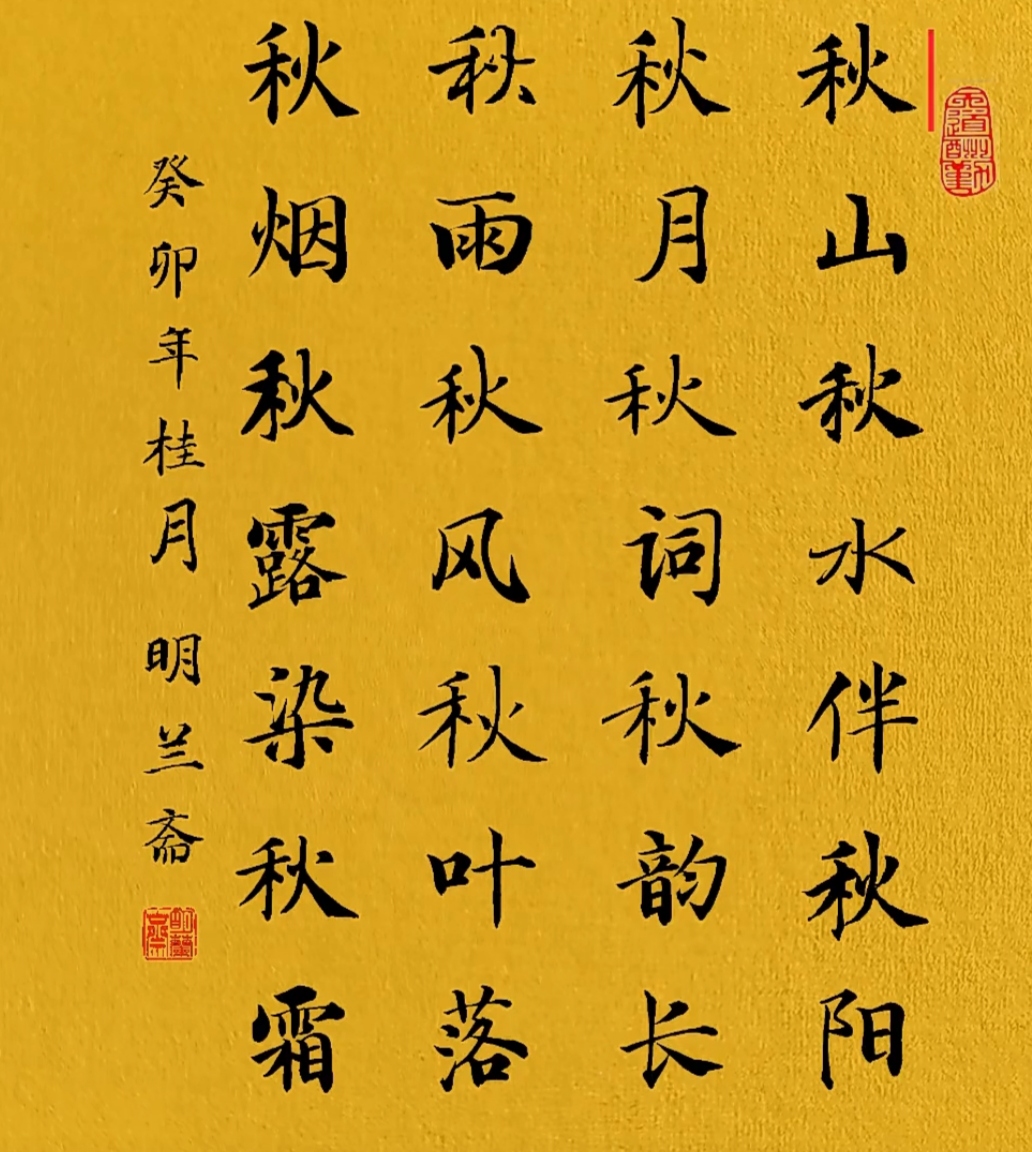 秋山秋水伴秋阳
秋月秋词秋韵长
秋雨秋风秋叶落
秋烟秋露染秋霜
癸卯年桂月明兰斋
天道酬勤
明兰斋